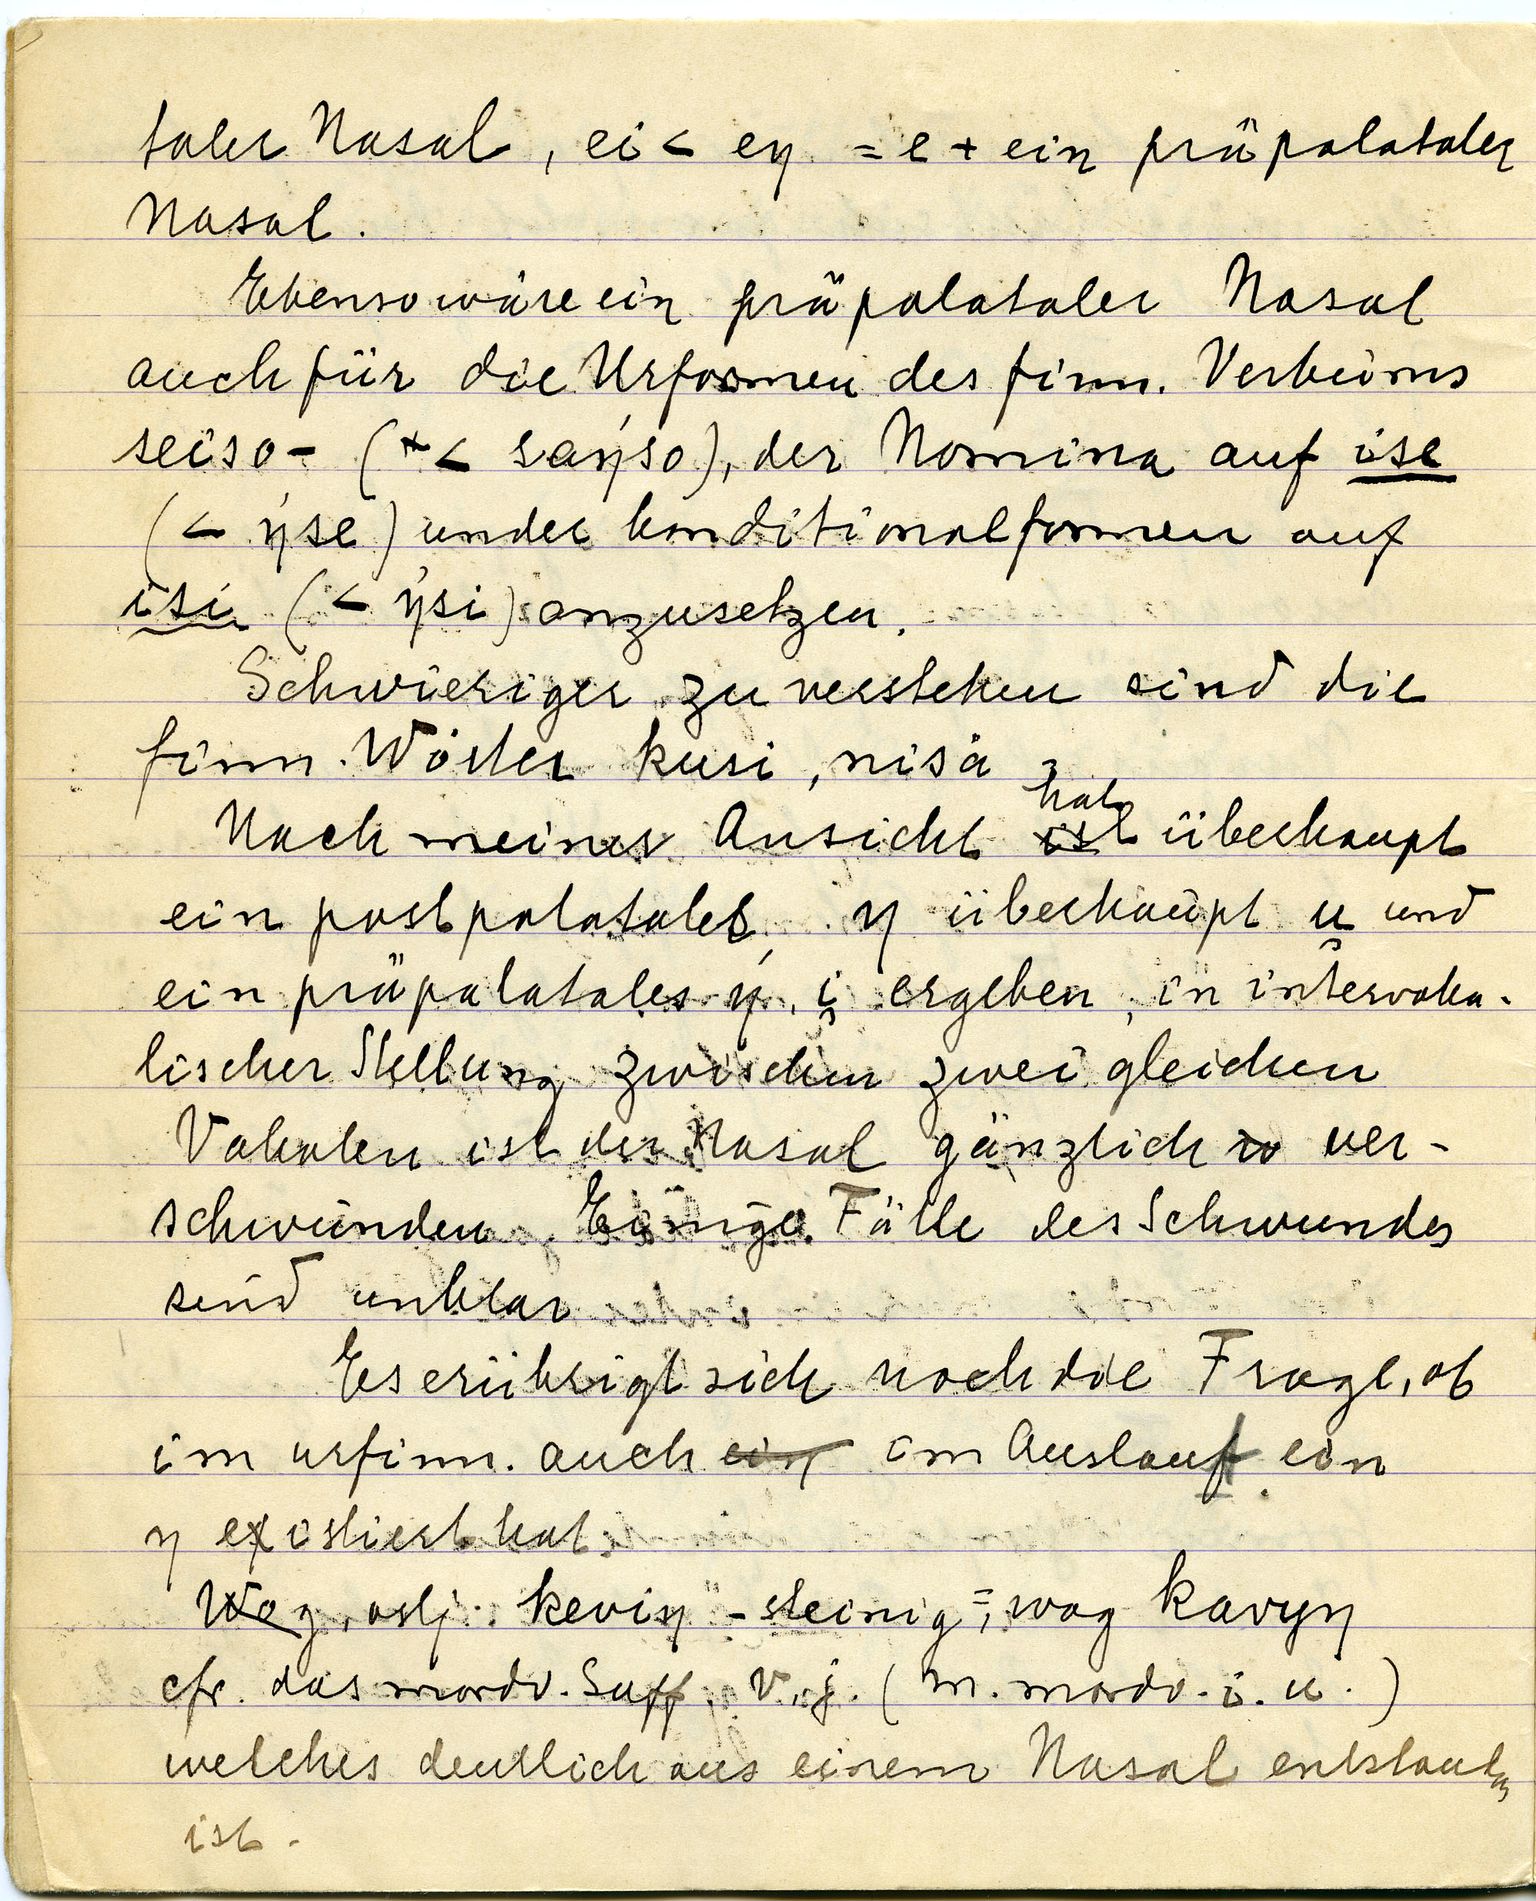 taler Nasal, ei < eŋ = e + ein präpalataler
Nasal.
Ebenso wäre ein präpalataler Nasal
auch für die Urformen des finn. Verbums
seiso- (*< saŋ́so), der Nomina auf ise
(< ŋ́se) under konditionalformen auf
isi (< ŋ́si) anzusetzen.
Schwieriger zu verstehen sind die
finn. Wörter kusi, nisä
Nach meiner Ansicht ist hat überhaupt
ein postpalatales ŋ überhaupt u̯ und
ein präpalatales ŋ́, i̯ ergeben, in intervoka-
lischer Stellung zwischen zwei gleichen
Vokalen ist der Nasal gänzlich w ver-
schwunden. Einige Fälle des Schwundes
sind unklar
Es erübrigt sich noch die Frage, ob
im urfinn. auch ein im Auslauf ein
ŋ existiert hat.
Wog, ostj. keviŋ - steinig =, wog kavyŋ
cfr. das mordv. Suff. v, j. (m. mordv. i. u.)
welches deutlich aus einem Nasal entstanden
ist.